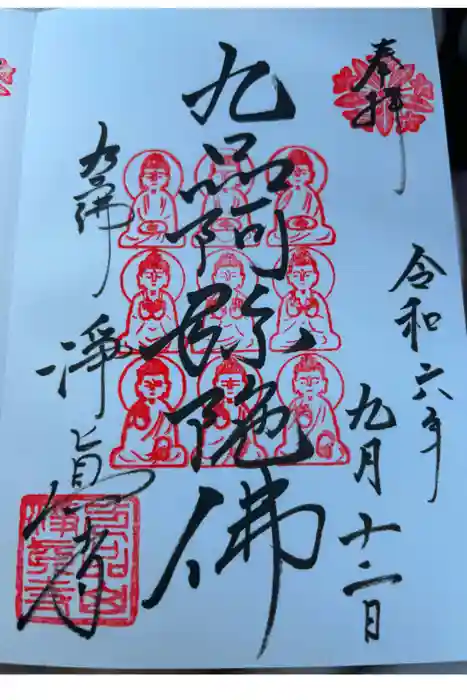 奉拝
令和六年
九月十二日
九品阿弥陁佛
九品佛
淨真寺